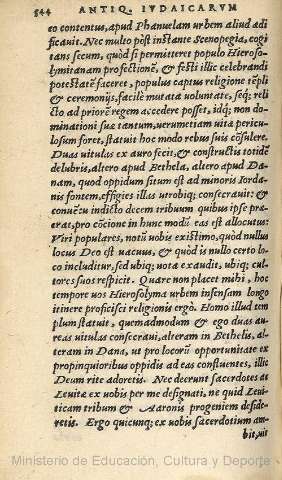 544 ANTIQ. IVDAICARVM
eo contentus, apud Phanuelam urbem aliud ædi
ficauit. Nec multo pòst instante Scenopegia, cogi
tans secum, quòd si permitteret populo Hieroso-
lymitanam profectionē, & festi illic celebrandi
potestatē faceret, populus captus religione tēpli
& ceremonijs, facilè mutata voluntate, seq; reli
cto ad priorē regem accedere posset, idq; non do-
minationi suæ tantum, verumetiam vitæ pericu-
losum foret, statuit hoc modo rebus suis cōsulere.
Duas vitulas ex auro fecit, & constructis totidē
delubris, altero apud Bethela, altero apud Da-
nam, quod oppidum situm est ad minoris Iorda-
nis fontem, effigies illas utrobiq; consecrauit: &
conuētu indicto decem tribuum quibus ipse præ-
erat, pro cōcione in hunc modū eas est allocutus:
Viri populares, notū vobis existimo, quòd nullus
locus Deo est vacuus, & quòd is nullo certo lo-
co includitur, sed ubiq; vota exaudit, ubiq; cul-
tores suos respicit. Quare non placet mihi, hoc
tempore vos Hierosolyma urbem infensam longo
itinere proficisci religionis ergò. Homo illud tem
plum statuit, quemadmodum & ego duas au-
reas vitulas consecraui, alteram in Bethelis, al-
teram in Dana, ut pro locorū opportunitate ex
propinquioribus oppidis ad eas confluentes, illic
Deum rite adoretis. Nec deerunt sacerdotes at
Leuitæ ex vobis per me designati, ne quid Leui-
ticam tribum & Aaronis progeniem deside-
retis. Ergo quicunq; ex vobis sacerdotium am-
bit, vit
Ministerio de Educación, Cultura y Deporte